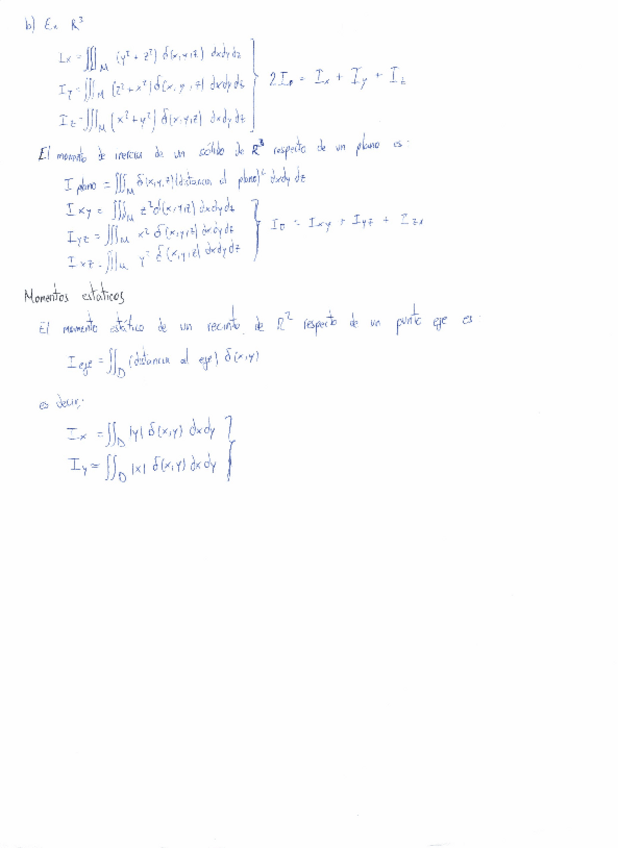 b) En R³
Ix = ∭_M (y² + z²) δ(x,y,z) dxdydz
Iy = ∭_M (z² + x²) δ(x,y,z) dxdydz } 2I₀ = Ix + Iy + Iz
Iz = ∭_M (x² + y²) δ(x,y,z) dxdydz
El momento de inercia de un sólido de R³ respecto de un plano es:
I plano = ∭_M δ(x,y,z)(distancia al plano)² dxdydz
Ixy = ∭_M z² δ(x,y,z) dxdydz
Iyz = ∭_M x² δ(x,y,z) dxdydz } I₀ = Ixy + Iyz + Izx
Ixz = ∭_M y² δ(x,y,z) dxdydz
Momentos estáticos
El momento estático de un recinto de R² respecto de un punto eje es:
I eje = ∬_D (distancia al eje) δ(x,y)
es decir:
Ix = ∬_D |y| δ(x,y) dxdy
Iy = ∬_D |x| δ(x,y) dxdy }